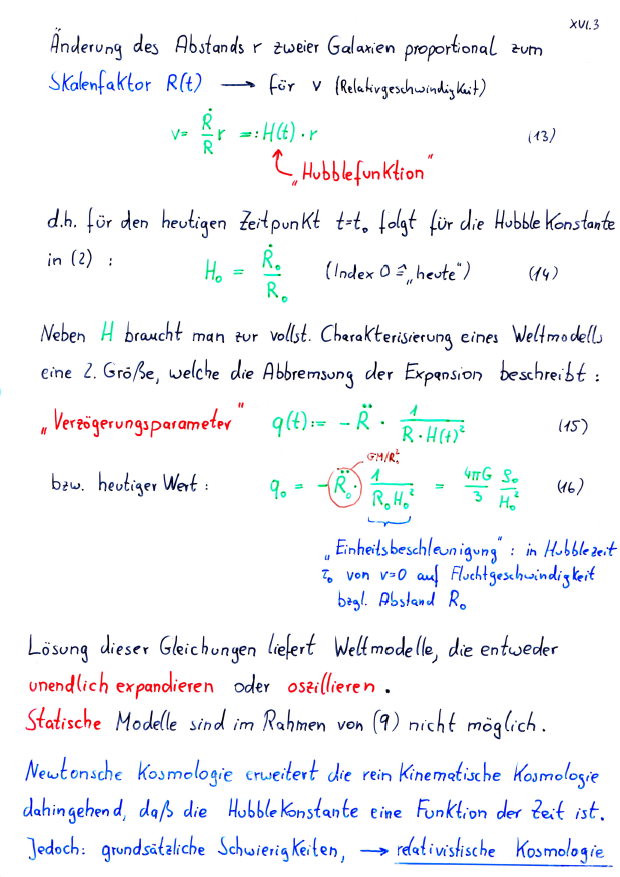 XVI.3
Änderung des Abstands r zweier Galaxien proportional zum
Skalenfaktor R(t) → für v (Relativgeschwindigkeit)
v = Ṙ/R r =: H(t) · r (13)
„Hubblefunktion"
d.h. für den heutigen Zeitpunkt t=t₀ folgt für die Hubble Konstante
in (2) : H₀ = Ṙ₀/R₀ (Index 0 ≙ „heute") (14)
Neben H braucht man zur vollst. Charakterisierung eines Weltmodells
eine 2. Größe, welche die Abbremsung der Expansion beschreibt :
„Verzögerungsparameter" q(t) := - R̈ · 1/(R · H(t)²) (15)
GM/R₀²
bzw. heutiger Wert : q₀ = - R̈₀ · 1/(R₀ H₀²) = 4πG/3 ρ₀/H₀² (16)
„Einheitsbeschleunigung" : in Hubblezeit
τ₀ von v=0 auf Fluchtgeschwindigkeit
bzgl. Abstand R₀
Lösung dieser Gleichungen liefert Weltmodelle, die entweder
unendlich expandieren oder oszillieren .
Statische Modelle sind im Rahmen von (9) nicht möglich .
Newtonsche Kosmologie erweitert die rein Kinematische Kosmologie
dahingehend, daß die HubbleKonstante eine Funktion der Zeit ist.
Jedoch: grundsätzliche Schwierigkeiten, → relativistische Kosmologie